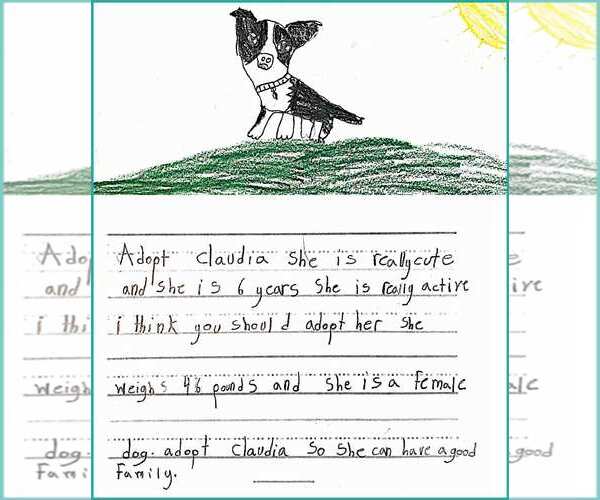 Adopt Claudia She is really cute
and she is 6 years She is really active
i think you should adopt her she
weighs 46 pounds and she is a female
dog. adopt Claudia so she can have a good
family.